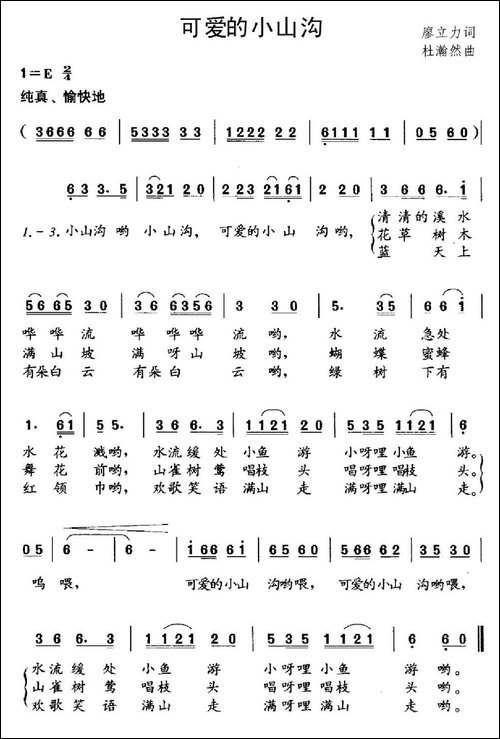 可爱的小山沟
廖立力词
杜瀚然曲
1=E 2/4
纯真、愉快地
( 3666 66 | 5333 33 | 1222 22 | 6111 11 | 05 60 ) |
63 3.5 | 321 20 | 223 2161 | 2 20 | 3 66 6.1 |
1.-3.小山沟 哟 小山沟, 可爱的小山 沟哟, 清清的溪水
花草树木
蓝天上
5665 30 | 36 6356 | 3 30 | 5. 35 | 66 1 |
哗哗流 哗哗哗流 哟, 水流急处
满山坡 满呀山坡 哟, 蝴蝶蜜蜂
有朵白云 有朵白云 哟, 绿树下有
1. 61 | 55. | 36 6.3 | 1121 20 | 5535 1121 | 6 |
水花溅哟, 水流缓处 小鱼游 小呀哩小鱼 游。
舞花前哟, 山雀树莺 唱枝头 唱呀哩唱枝 头。
红领巾哟, 欢歌笑语 满山走 满呀哩满山 走。
05 | 6 - | 6 - | 166 61 | 5335 60 | 223 56 | 3530 |
呜喂, 可爱的小山 沟哟喂, 可爱的小山 沟哟喂,
36 6.3 | 1121 20 | 5535 1121 | 6 60 ‖
水流缓处 小鱼游 小呀哩小鱼 游哟。
山雀树莺 唱枝头 唱呀哩唱枝 头哟。
欢歌笑语 满山走 满呀哩满山 走哟。